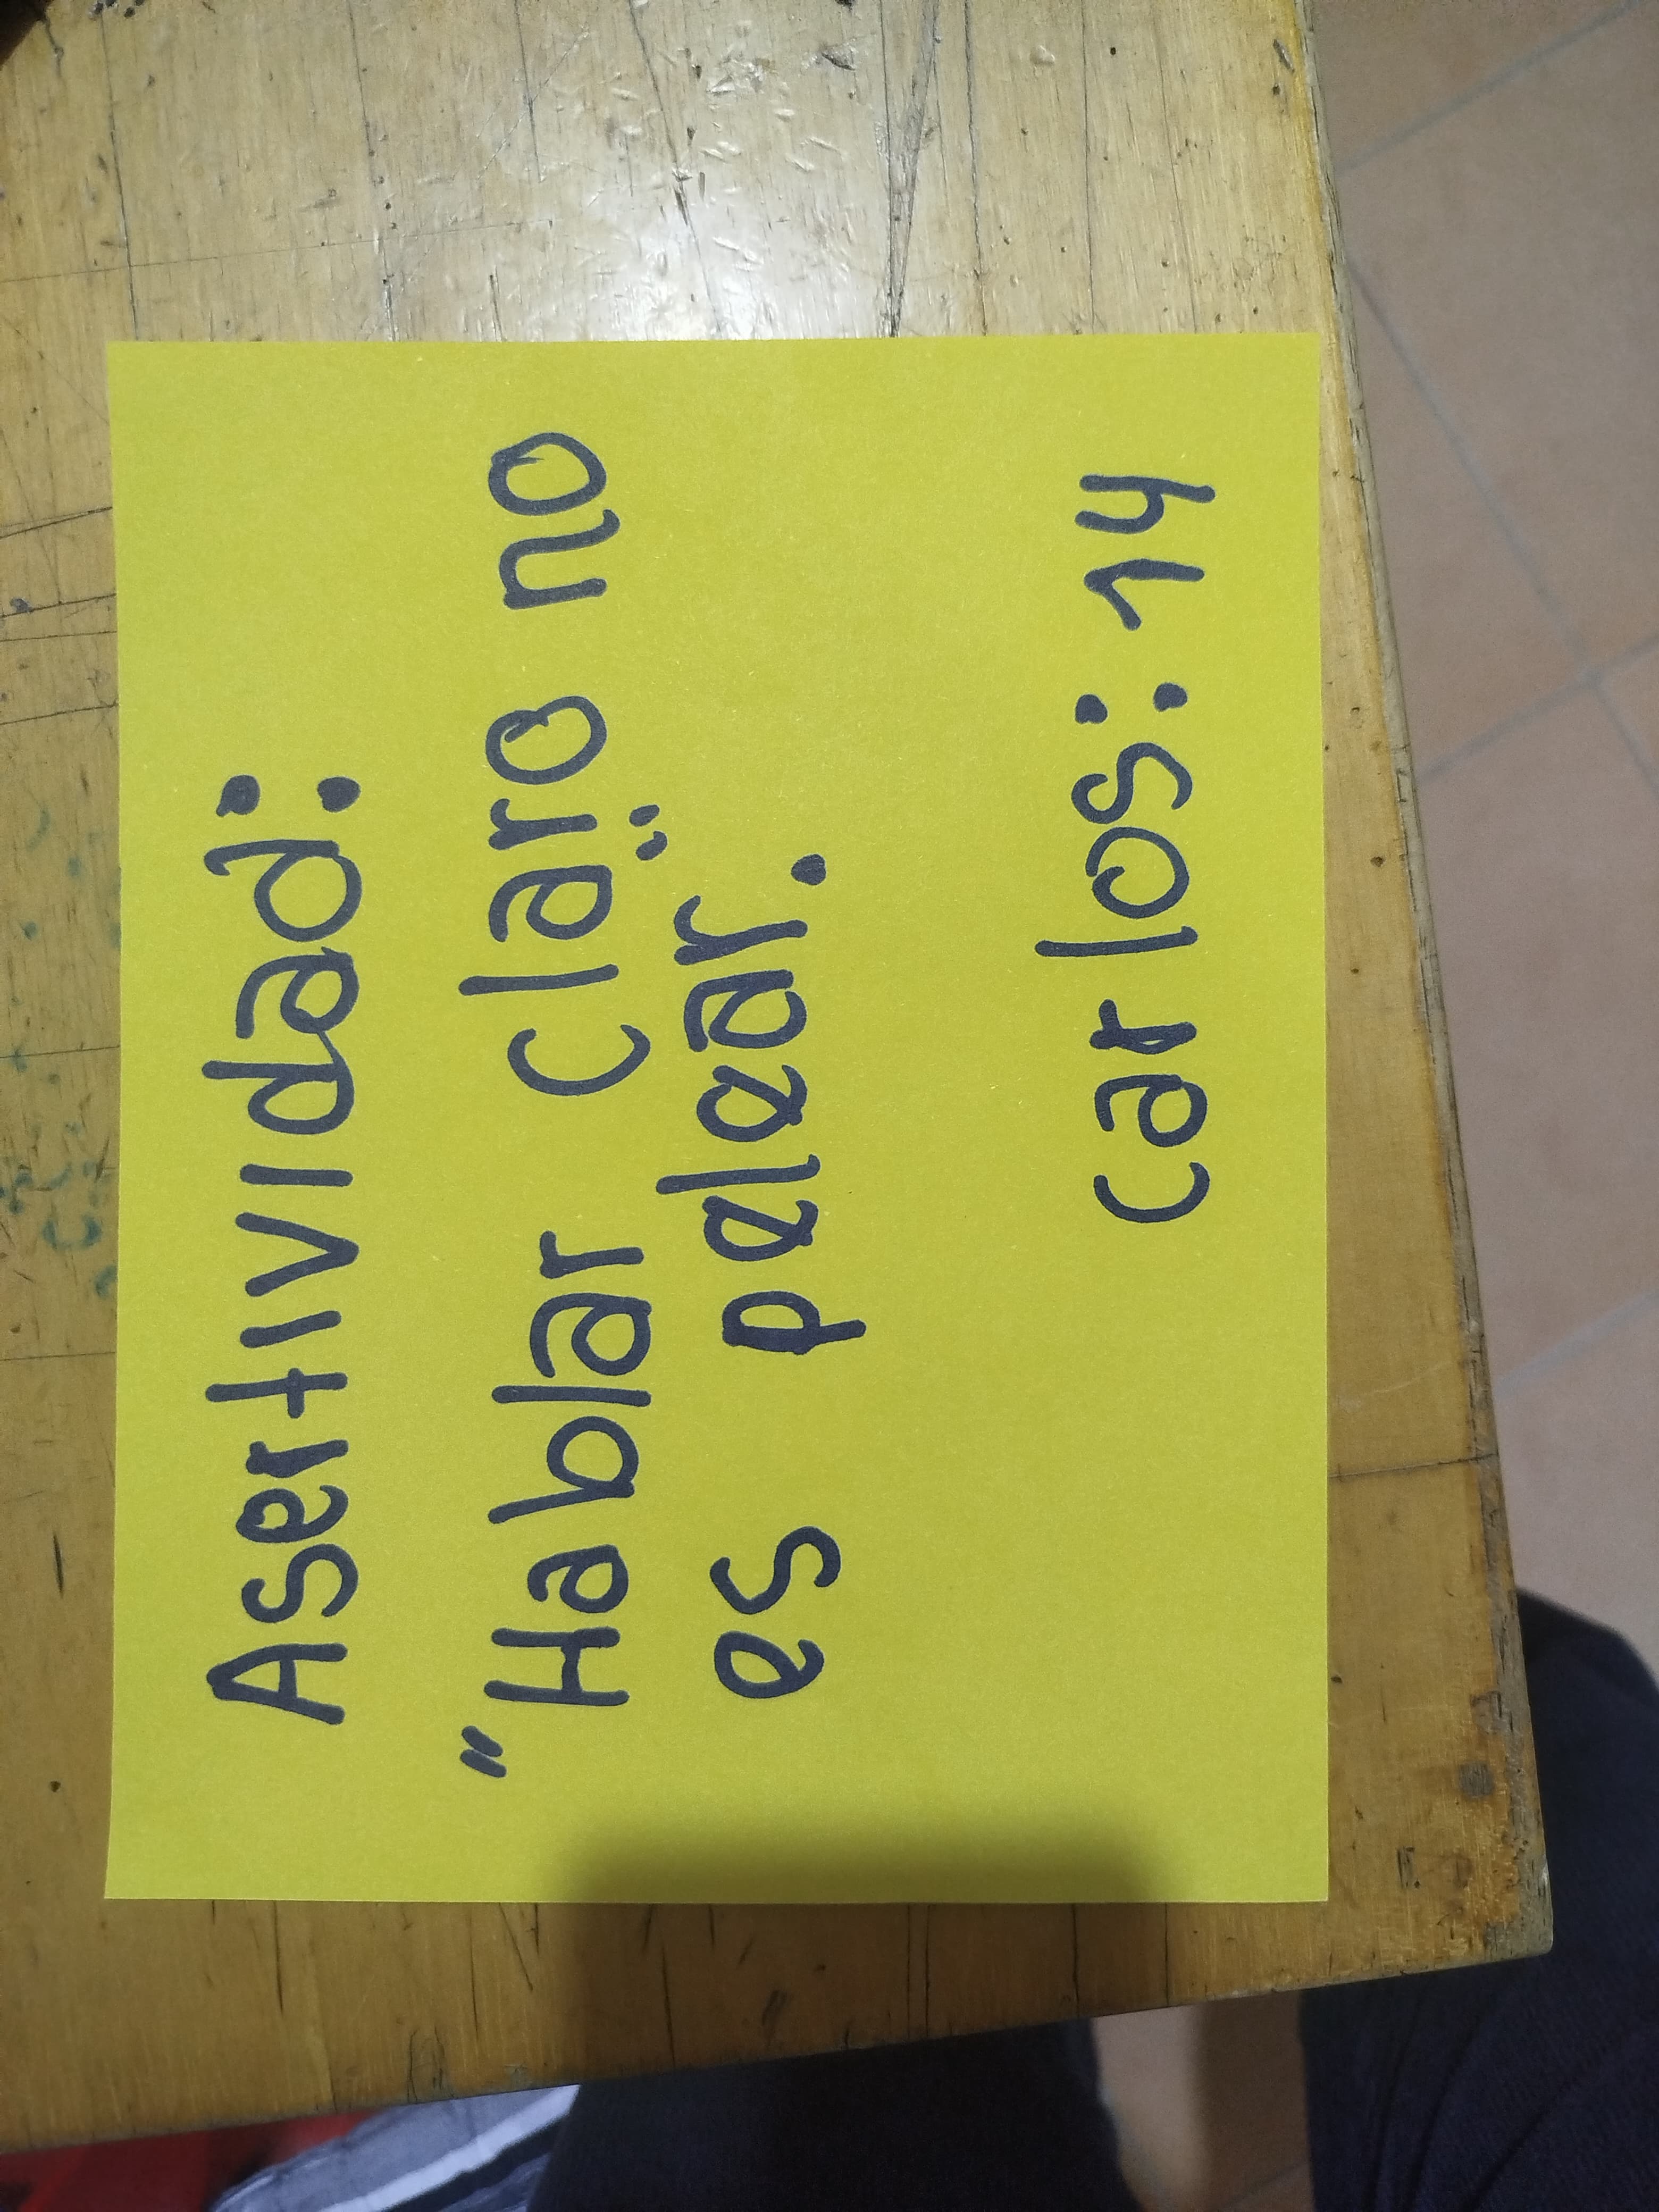 Asertividad:
"Hablar claro no
es pelear."
carlos: 14